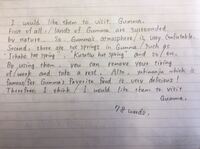 I would like them to visit Gumma.
First of all, lands of Gumma are surrounded
by nature. So Gumma's atmosphere is very comfortable.
Second, there are hot springs in Gumma such as
"Ikaho hot spring", "Kusatsu hot spring" and so on.
By using them, you can remove your tiring
of week and take a rest. Also, yakimanju which is
famous for Gumma's favorite food is very delicious!
Therefore I think I would like them to visit
Gumma.
78 words.